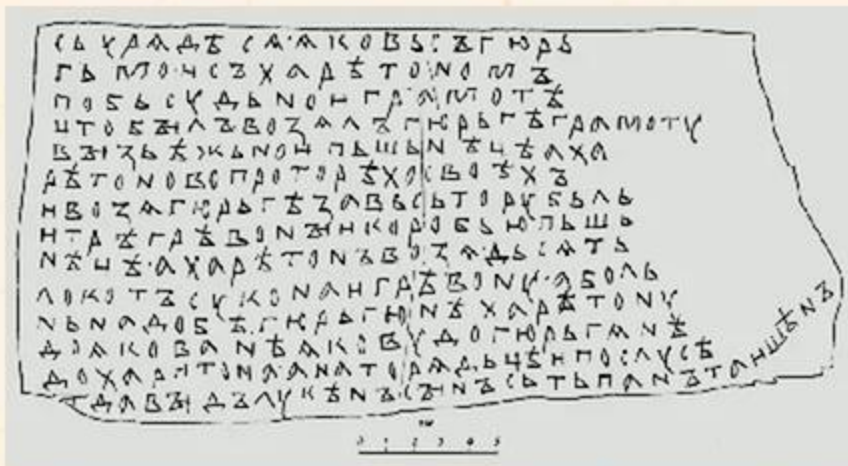 СЬУРѦДѢСѦ·ѦКОВЬСЪГЮРЬ
ГЬМО·ИСЪХАРѢТОНОМЪ
ПОБЬСУДЬНОИГРАМОТѢ
ЦТОБЪІЛЪВОЗѦЛЪГЮРЬГѢГРАМОТУ
ВЪІЗЬѢЖЬНОИПЬШЬНѢЦѢАХА
РѢТОНОВОПРОТОРѢХОСВОѢХЪ
ИВОЗѦГЮРЬГѢЗАВЬСЬТОРУБЬЛЬ
ИТРѢГРѢВОНЪІИКОРОБЬЮПЬШЬ
НѢЦѢ·АХАРѢТОНЪВОЗѦ·ДЬСѦТЬ
ЛОКОТЪСУКОНАИГРѢВОНУ·АБОЛЬ
НЬНАДОБѢ·ГЮРЬГЮНѢХАРѢТОНУ
ДОѦКОВАНѢѦКОВУДОГЮРЬГѦНѢ
ДОХАРѦТОНААНАТОРѦДЬЦѢИПОСЛУСѢ
ТДАВЪІДЪЛУКѢНЪСЪІНЪСЬТЬПАНЪТАИШѢНЪ
см
0 1 2 3 4 5